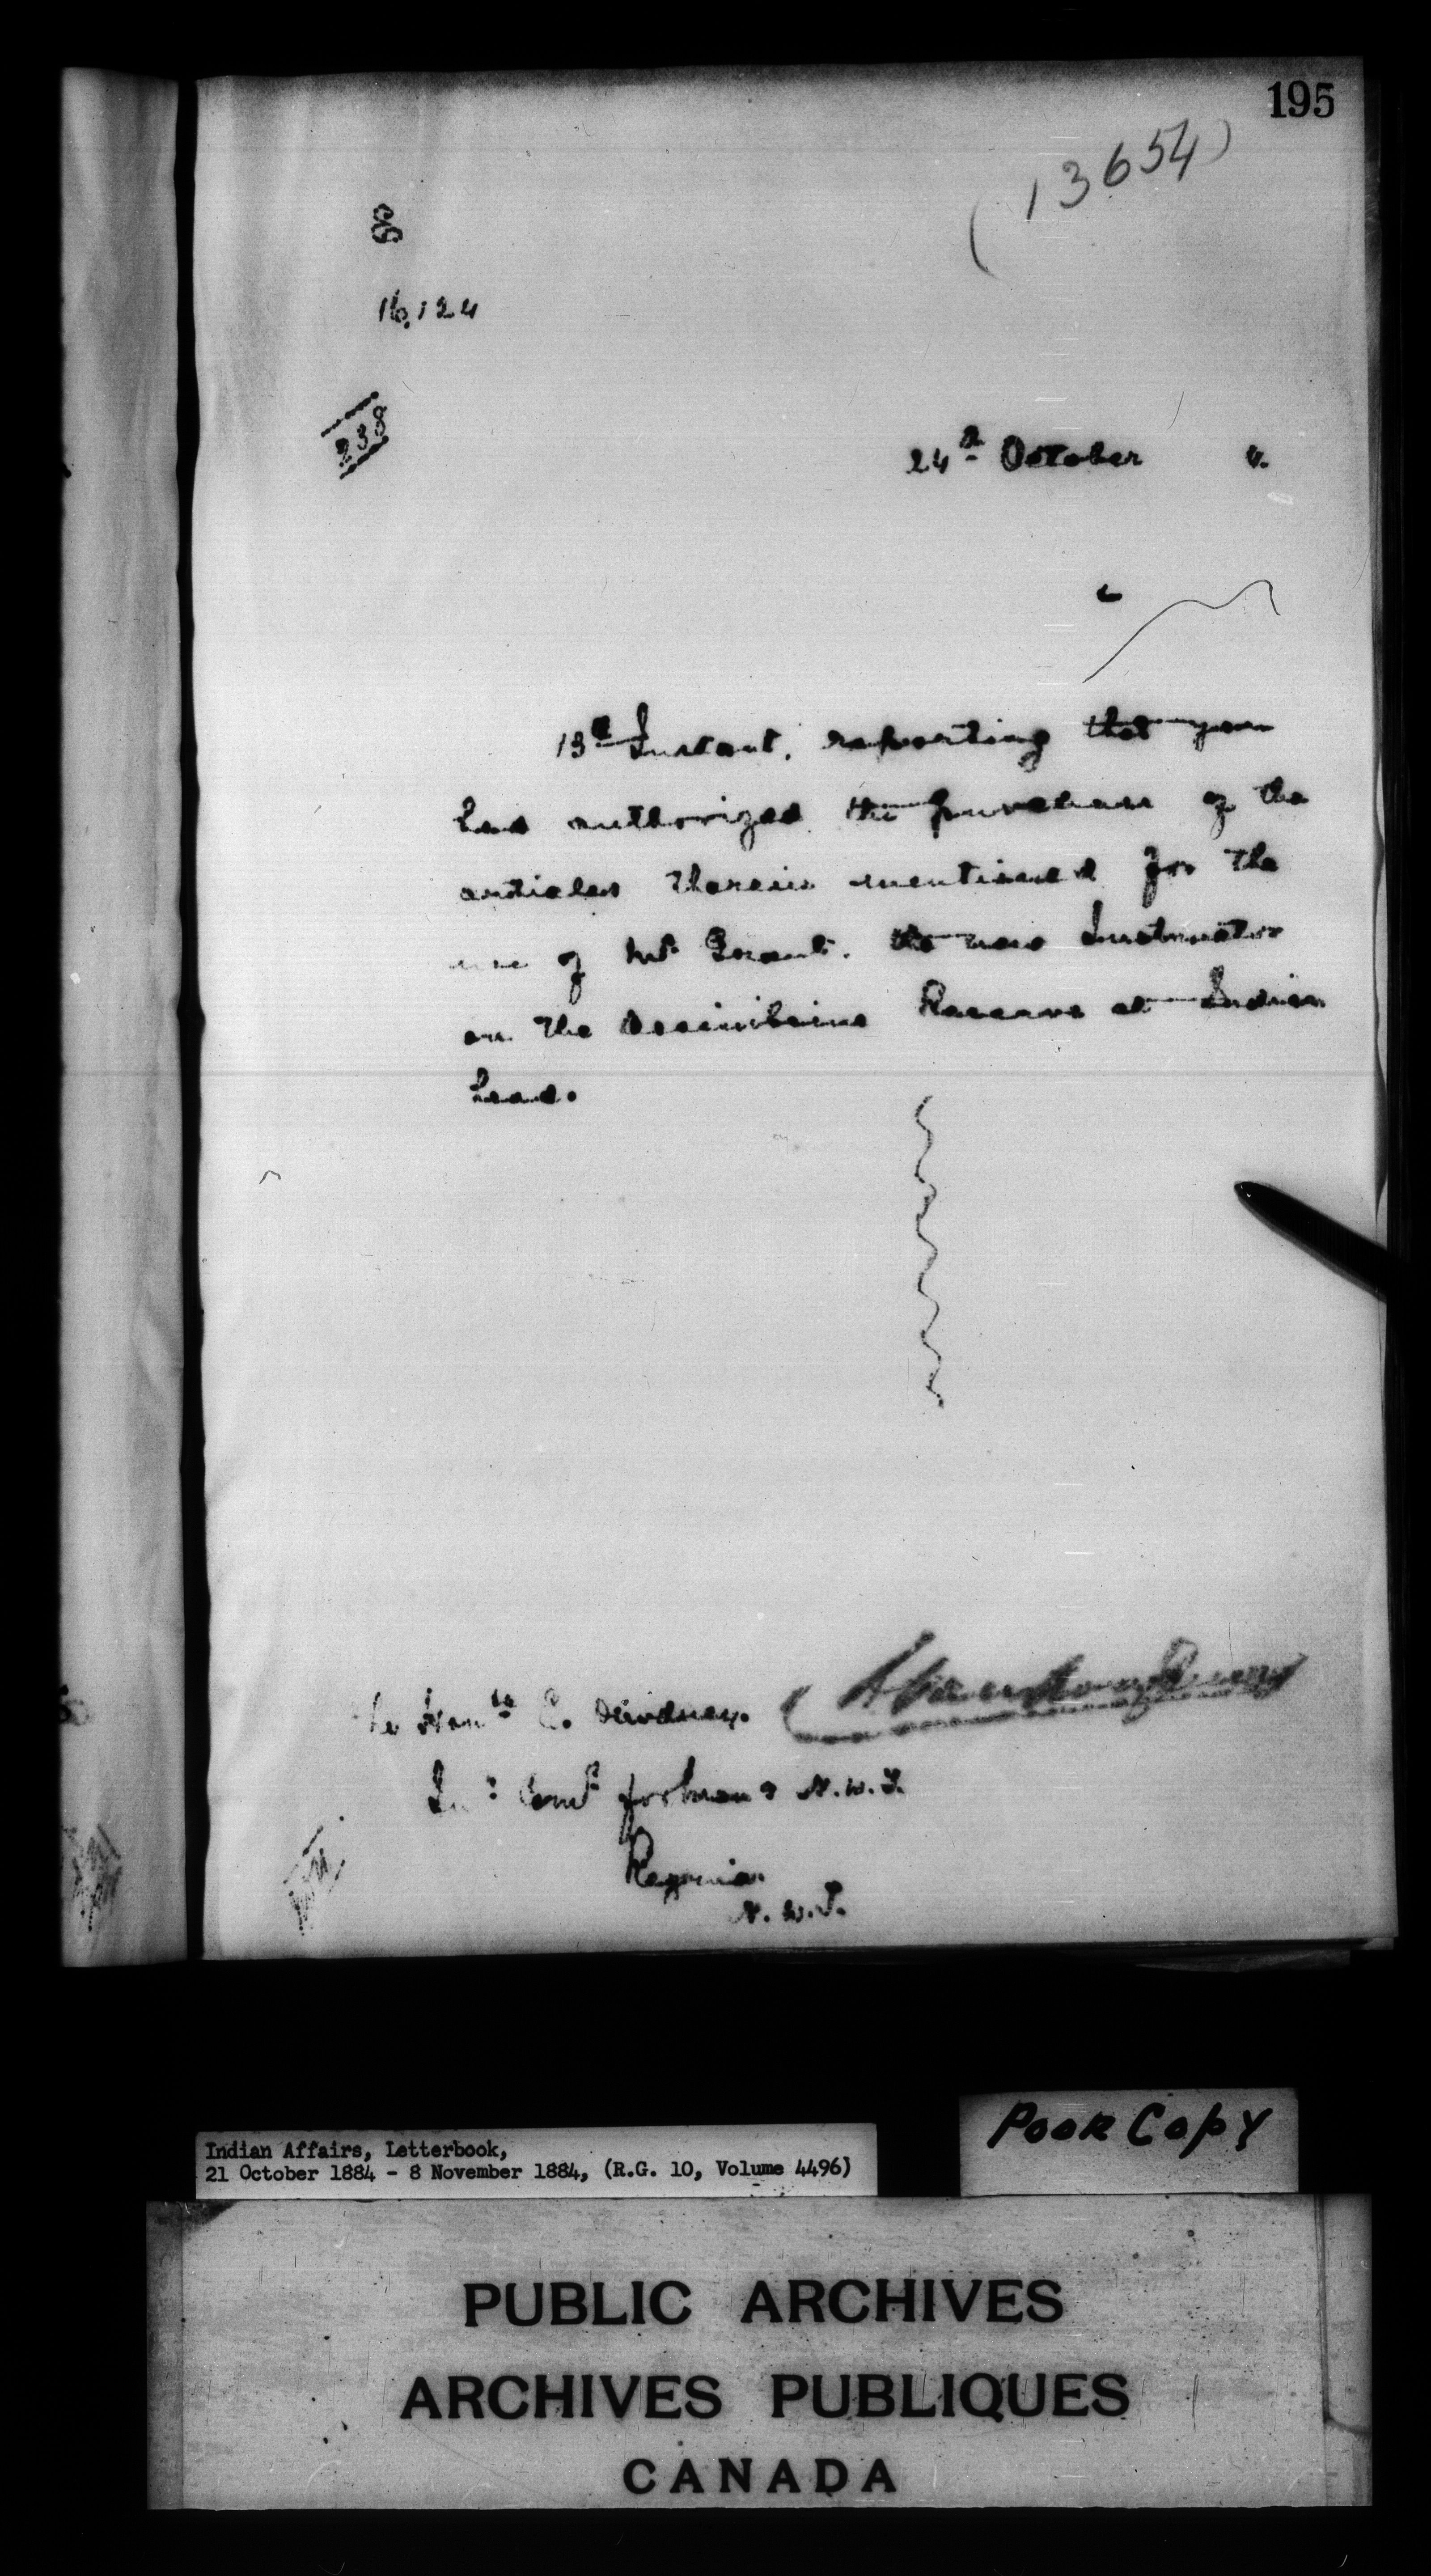 195
(13654)
16,124
238
24th October 4.
13th Instant, reporting that you
had authorized the purchase of the
articles therein mentioned for the
use of Mr Grant, the new Instructor
on the Assiniboine Reserve at Indian
head.
The Honble E. Dewdney.
In: Comr for Man & N.W.T.
Regina.
N.W.T.
Poor Copy
Indian Affairs, Letterbook,
21 October 1884 - 8 November 1884, (R.G. 10, Volume 4496)
PUBLIC ARCHIVES
ARCHIVES PUBLIQUES
CANADA